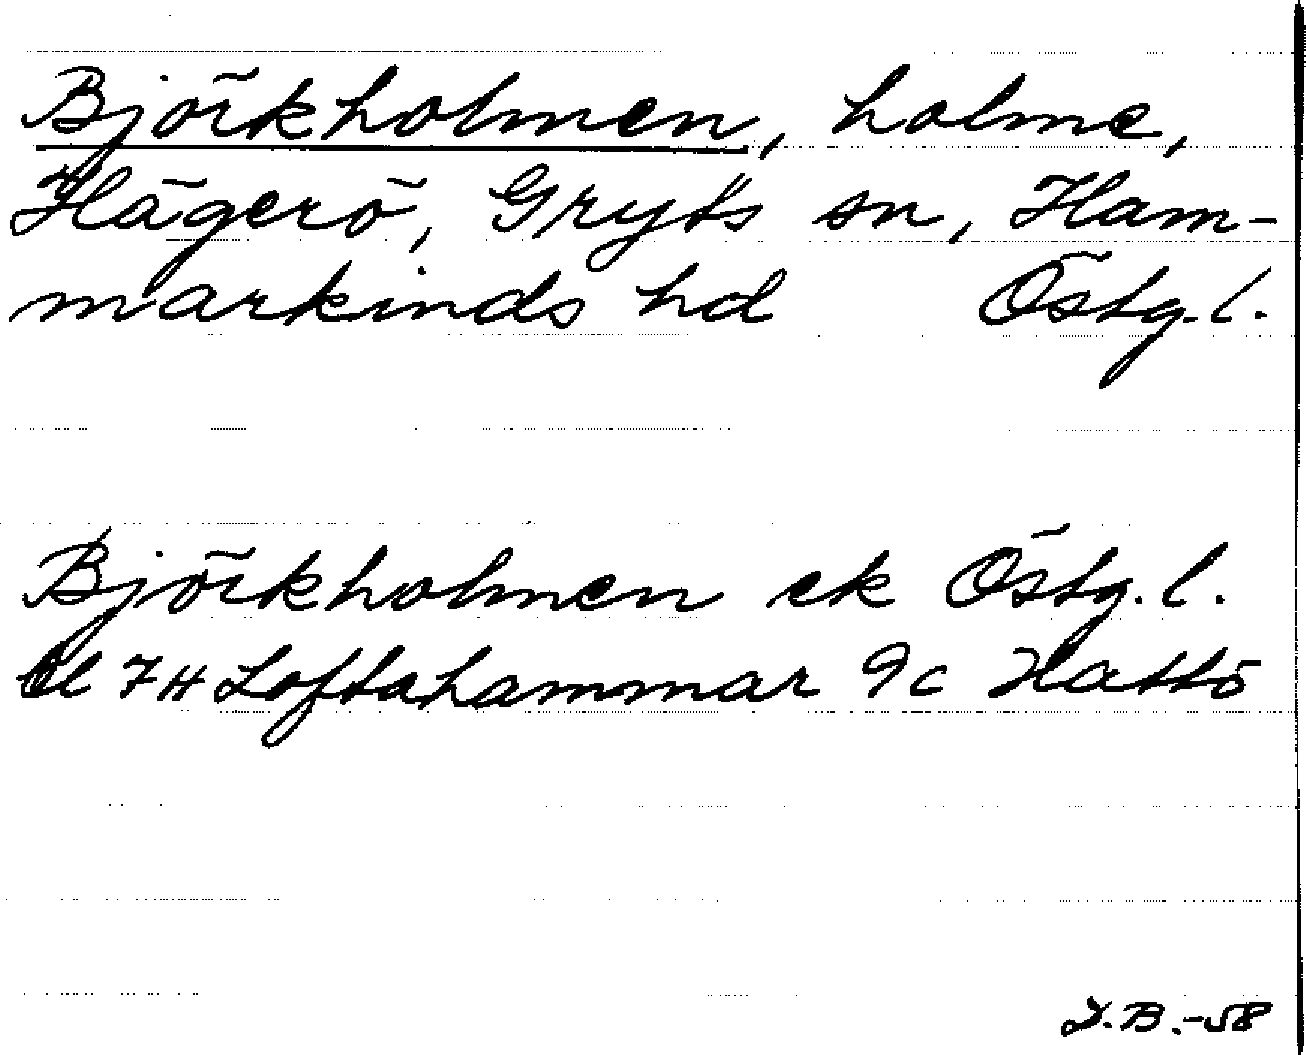 Björkholmen, holme,
Hägerö, Gryts sn, Ham-
markinds hd Östg. l.
Björkholmen ek Östg. l.
bl 7H Loftahammar 9c Hattö
J.B.-58